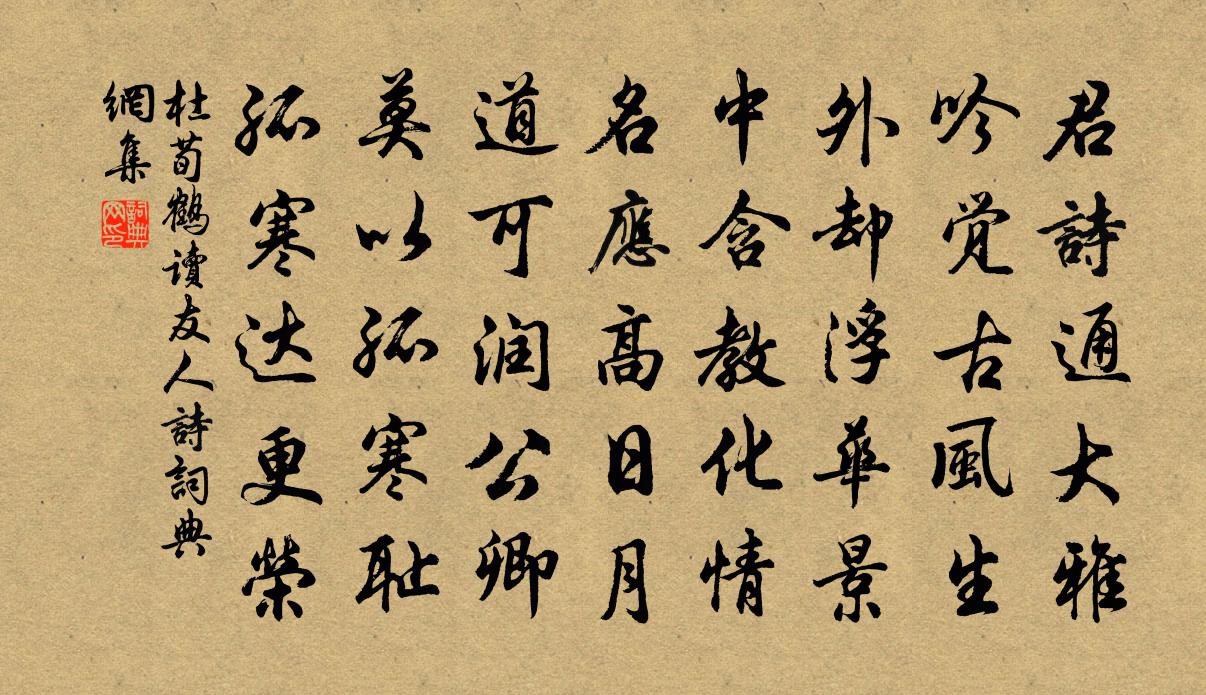 君詩通大雅
吟覚古風生
外却浮華景
中含教化情
名應高日月
道可润公卿
莫以孤寒耻
孤寒达更榮
杜荀鶴讀友人詩詞典
網集
詞典
网印